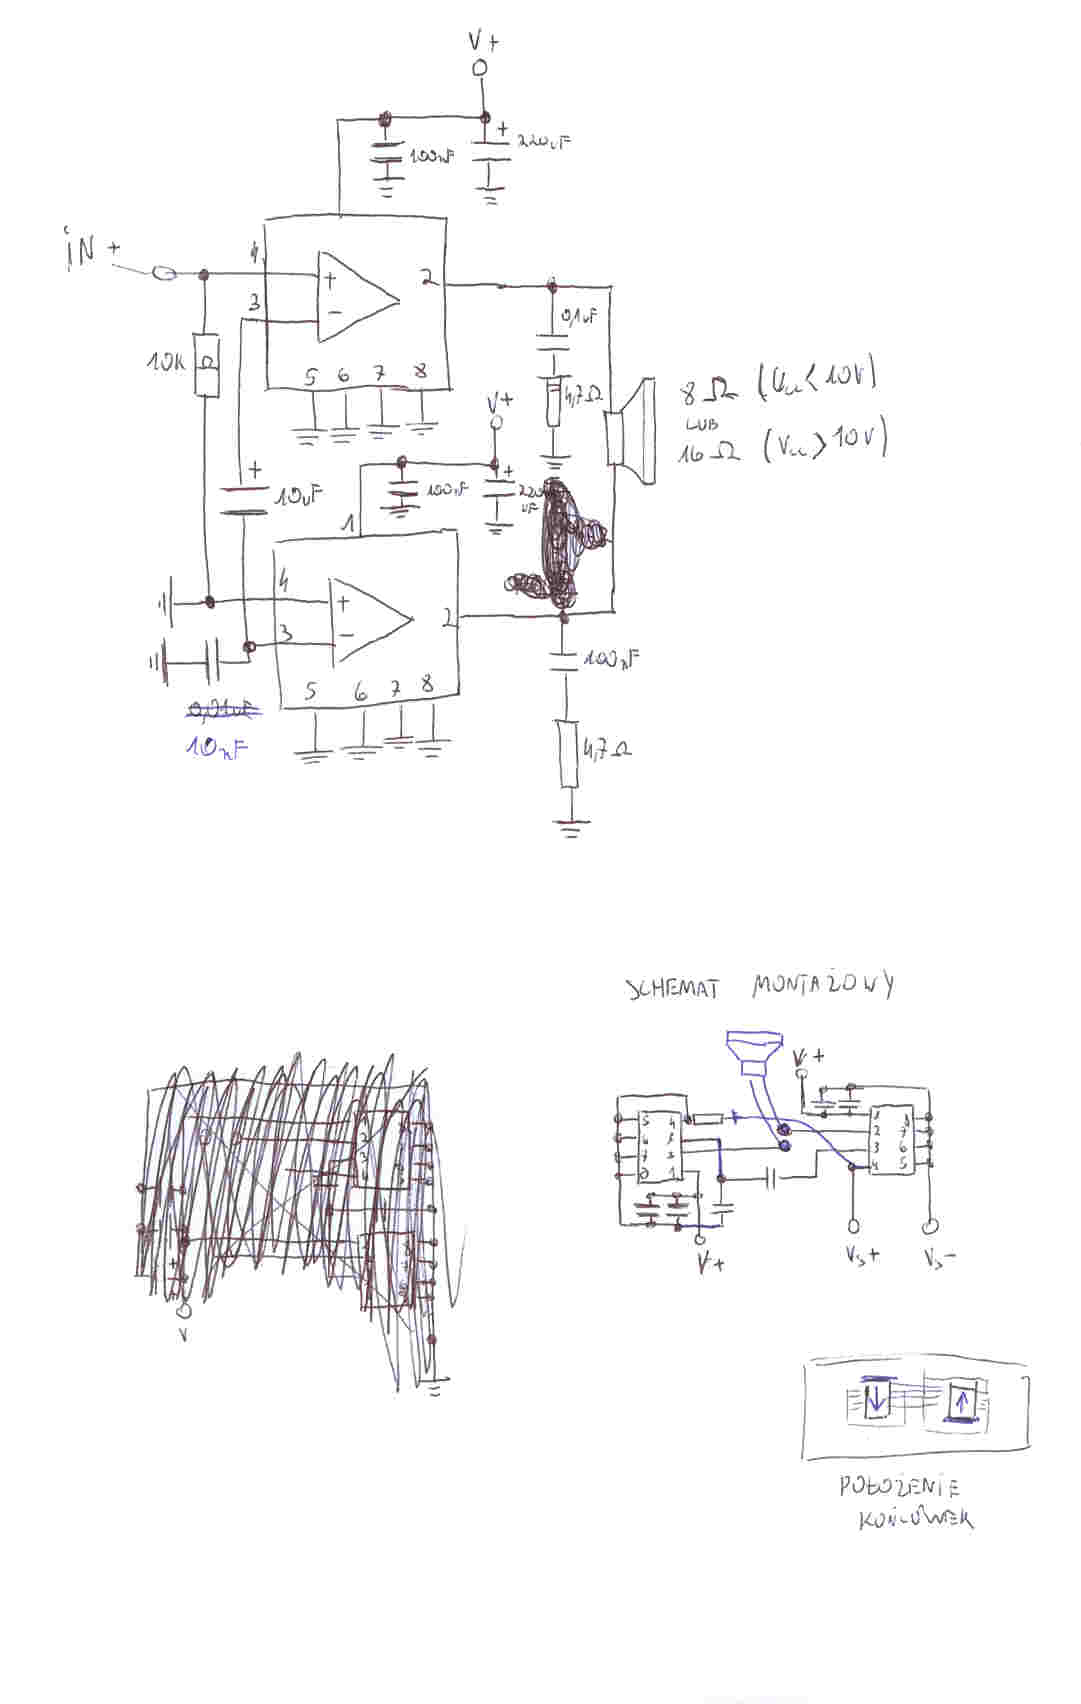 V+
+
220uF
100nF
iN +
4
+
3
-
2
5 6 7 8
10K
Ω
0,1uF
4,7Ω
8 Ω (Vcc < 10V)
LUB
16 Ω (Vcc > 10V)
V+
+
10uF
+
100nF
220
uF
1
4
+
3
-
2
5 6 7 8
0,01uF
10nF
100nF
4,7Ω
SCHEMAT MONTAŻOWY
V+
5 4
6 3
7 2
8 1
1 8
2 7
3 6
4 5
V+
Vs+
Vs-
V
POŁOŻENIE
KOŃCÓWEK